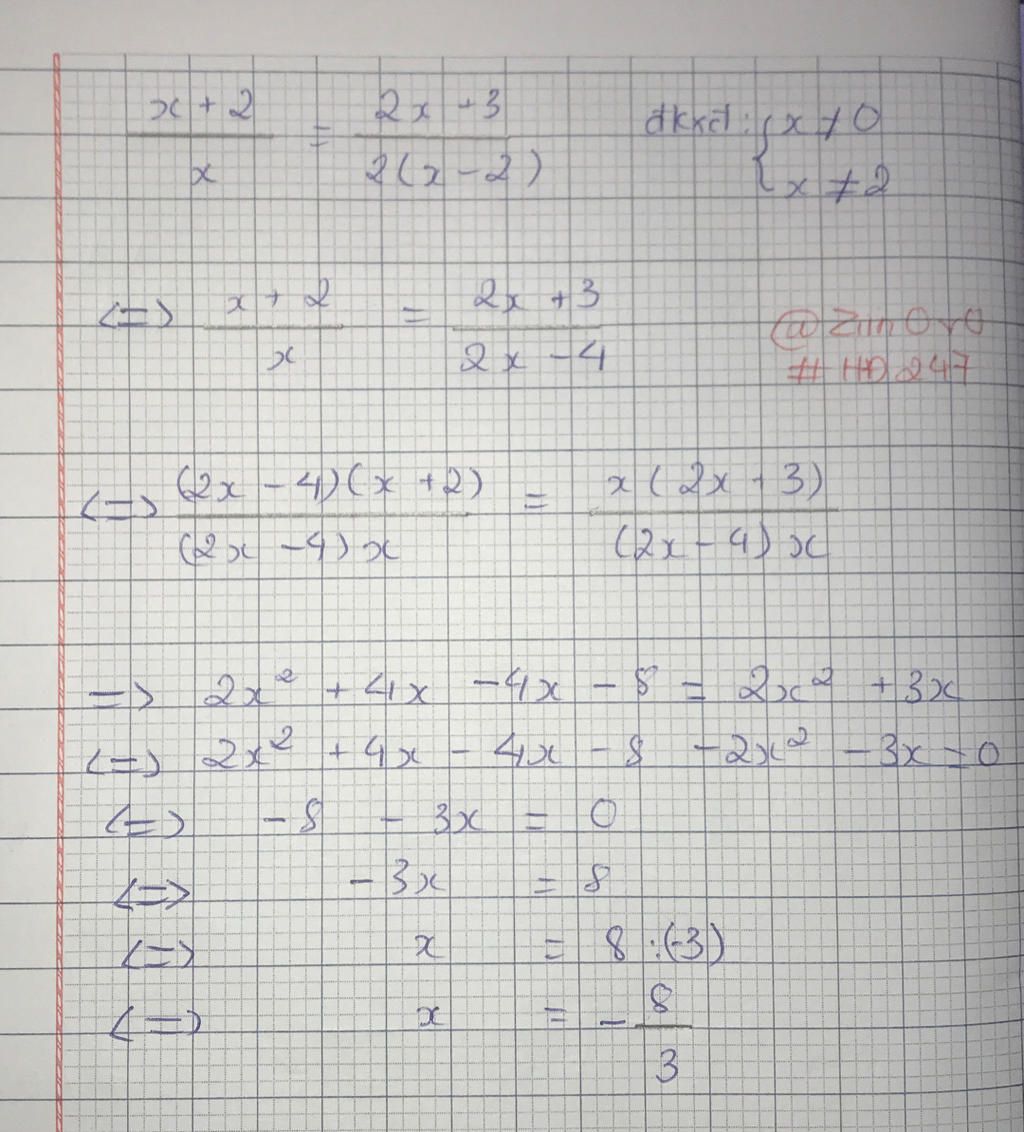 x + 2 / x = 2x + 3 / 2(x - 2) đkxđ: { x ≠ 0
x ≠ 2
<=> x + 2 / x = 2x + 3 / 2x - 4
@ZiinOvO
#HD247
<=> (2x - 4)(x + 2) / (2x - 4)x = x(2x + 3) / (2x - 4)x
=> 2x² + 4x - 4x - 8 = 2x² + 3x
<=> 2x² + 4x - 4x - 8 - 2x² - 3x = 0
<=> - 8 - 3x = 0
<=> - 3x = 8
<=> x = 8 : (-3)
<=> x = - 8 / 3